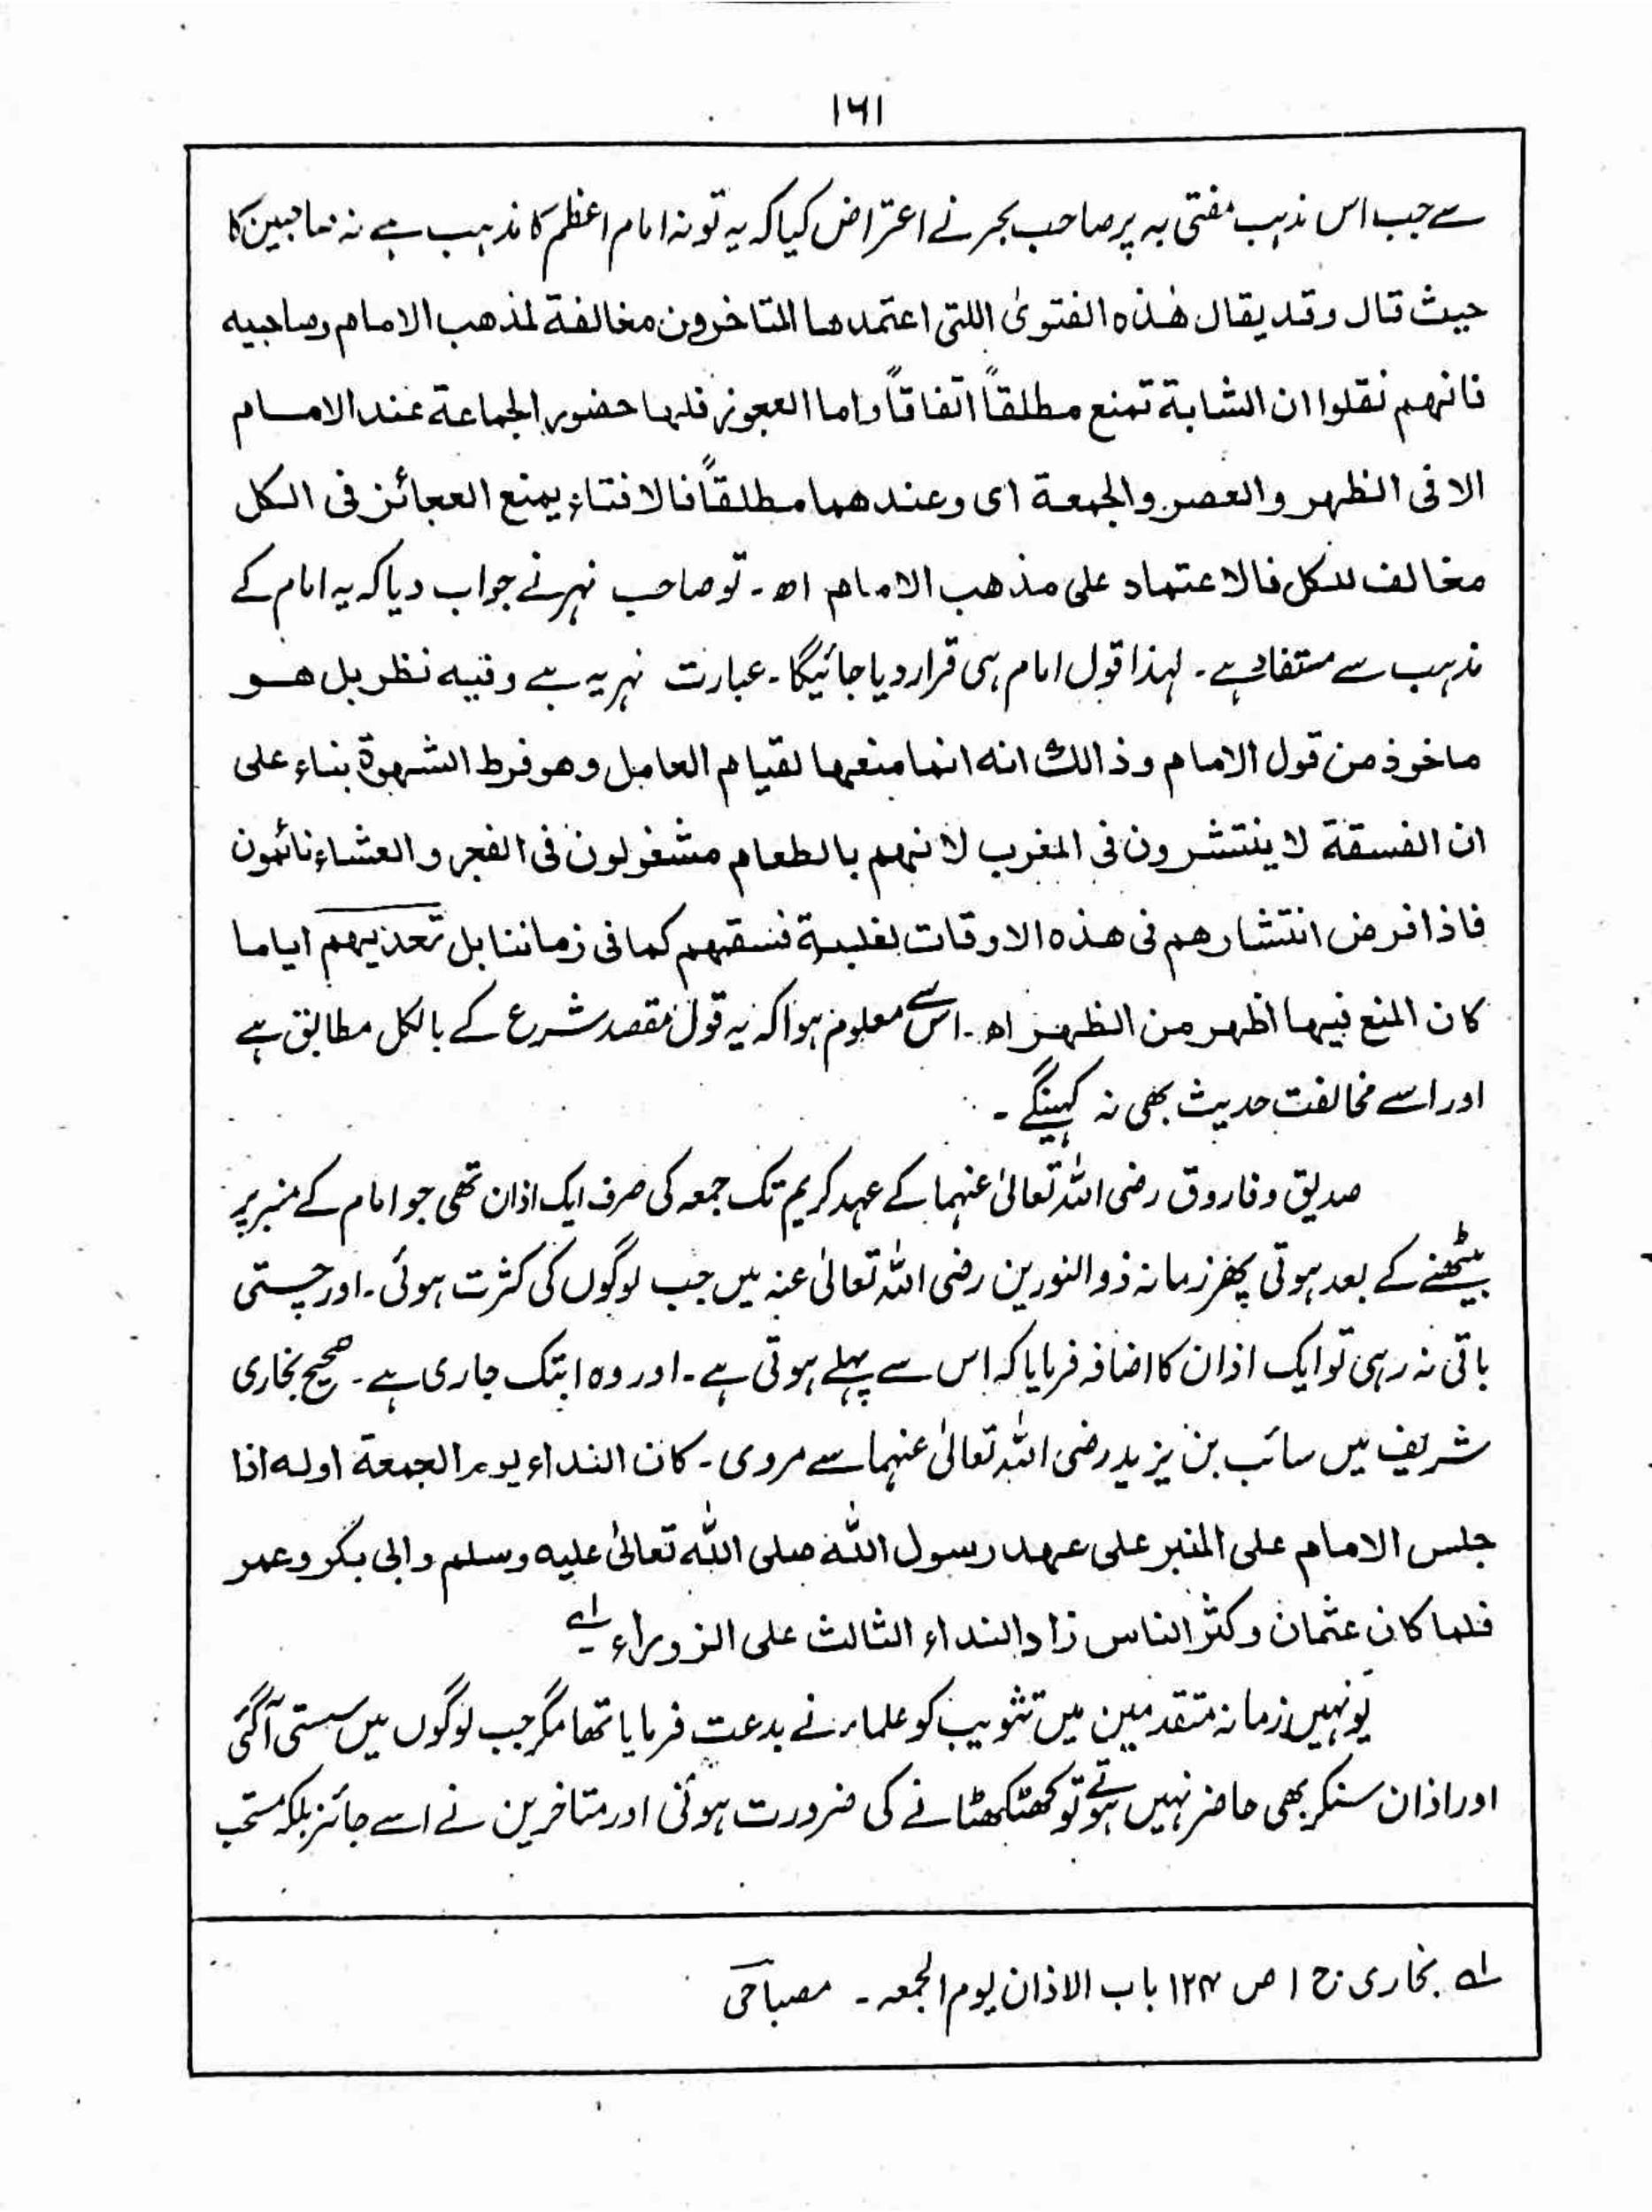 ۱۶۱
سے جب اس مذہب مفتی بہ پر صاحب بحر نے اعتراض کیا کہ یہ تو نہ امام اعظم کا مذہب ہے نہ صاحبین کا
حیث قال وقد یقال ھٰذہ الفتویٰ اللتی اعتمدھا المتاخرون مخالفة لمذھب الامام وصاحبیہ
فانہم نقلوا ان الشابة تمنع مطلقاً اتفاقاً واما العجوز فلہا حضور الجماعة عند الامام
الا فی الظہر والعصر والجمعة ای وعندھما مطلقاً فالافتاء یمنع العجائز فی الکل
مخالف للکل فالاعتماد علی مذھب الامام اھ ۔ تو صاحب نہر نے جواب دیا کہ یہ امام کے
مذہب سے مستفاد ہے ۔ لہذا قول امام ہی قرار دیا جائیگا ۔ عبارت نہر یہ ہے وفیہ نظر بل ھو
ماخوذ من قول الامام وذالک انہ انما منعہا لقیام الحامل وھو فرط الشہوة بناء علی
ان الفسقة لا ینتشرون فی المغرب لانہم بالطعام مشغولون فی الفجر والعشاء نائمون
فاذا فرض انتشارھم فی ھذہ الاوقات لغلبة فسقہم کما فی زماننا بل تحذیہم ایاما
کان المنع فیہا اظہر من الظہر اھ ۔ اس سے معلوم ہوا کہ یہ قول مقصد شرع کے بالکل مطابق ہے
اور اسے مخالفت حدیث بھی نہ کہینگے ۔
صدیق وفاروق رضی اللہ تعالیٰ عنہما کے عہد کریم تک جمعہ کی صرف ایک اذان تھی جو امام کے منبر پر
بیٹھنے کے بعد ہوتی پھر زمانہ ذوالنورین رضی اللہ تعالیٰ عنہ میں جب لوگوں کی کثرت ہوئی ۔ اور چستی
باقی نہ رہی تو ایک اذان کا اضافہ فرمایا کہ اس سے پہلے ہوتی ہے ۔ اور وہ ابتک جاری ہے ۔ صحیح بخاری
شریف میں سائب بن یزید رضی اللہ تعالیٰ عنہما سے مروی ۔ کان النداء یوم الجمعة اولہ اذا
جلس الامام علی المنبر علی عہد رسول اللہ صلی اللہ تعالیٰ علیہ وسلم وابی بکر وعمر
فلما کان عثمان وکثر الناس زاد النداء الثالث علی الزوراء ۱ے
یونہیں زمانہ متقدمین میں تثویب کو علماء نے بدعت فرمایا تھا مگر جب لوگوں میں سستی آگئی
اور اذان سنکر بھی حاضر نہیں ہوتے تو کھٹکھٹانے کی ضرورت ہوئی اور متاخرین نے اسے جائز بلکہ مستحب
۱ے بخاری ج ۱ ص ۱۲۴ باب الاذان یوم الجمعہ ۔ مصباحی